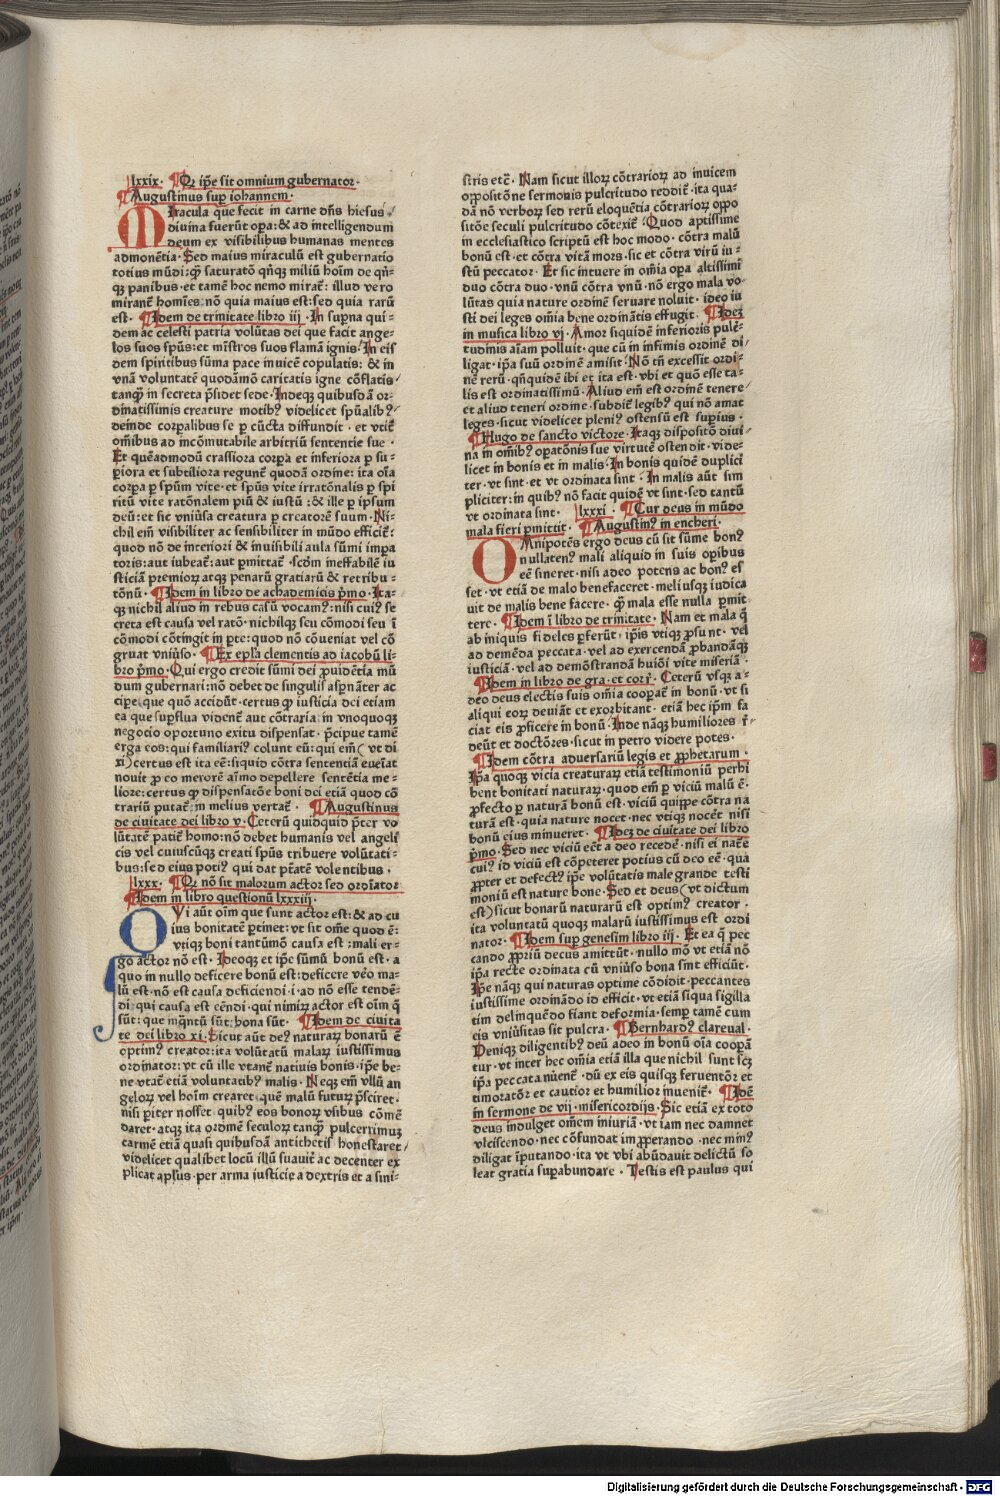 lxxix. ¶Qꝛ ip̄e sit omnium gubernator·
¶Augustinus suꝑ iohannem·
MIracula que fecit in carne dn̄s hiesus ⸝
diuina fuerūt oꝑa: & ad intelligendum
deum ex visibilibus humanas mentes
admonētia· Sed maius miraculū est gubernatio
totius mūdi: qͣꝫ saturatō qn̄qꝫ miliū hoīm de qn̄-
qꝫ panibus· et tamē hoc nemo mirat᷑: illud vero
mirant᷑ homīes: nō quia maius est: sed quia rarū
est· ¶Idem de trinitate libro iij· In supͥna qui-
dem ac celesti patria volūtas dei que facit ange-
los suos spūs: et mīstros suos flamā ignis· In eis
dem spiritibus sūma pace inuicē copulatis: & in
vnā voluntatē quodāmō caritatis igne cōflatis⸝
tanqͣꝫ in secreta p̄sidet sede· Indeqꝫ quibusdā or-
dinatissimis creature motibꝰ videlicet spūalibꝰ⸝
deinde corꝑalibus se ꝑ cūcta diffundit· et vtit᷑
om̄ibus ad incōmutabile arbitriū sententie sue·
Et quēadmodū crassiora corꝑa et inferiora ꝑ su-
ꝑiora et subtiliora regunt᷑ quodā ordine: ita oīa
corꝑa ꝑ spūm vite· et spūs vite irratōnalis ꝑ spi
ritū vite ratōnalem piū & iustū: & ille ꝑ ipsum
deū: et sic vniūsa creatura ꝑ creatorē suum· Ni-
chil em̄ visibiliter ac sensibiliter in mūdo efficit᷑:
quod nō de interiori & inuisibili aula sūmi imꝑa
toris: aut iubeat᷑: aut ꝑmittat᷑· scd̄m ineffabilē iu
sticiā premioꝝ atqꝫ penarū gratiarū & retribu-
tōnū· ¶Idem in libro de achademicis p̄mo· Ita-
qꝫ nichil aliud in rebus casū vocamꝰ: nisi cuiꝰ se
creta est causa vel ratō· nichilqꝫ seu cōmodi seu ī
cōmodi cōtingit in ꝑte: quod nō cōueniat vel cō
gruat vniūso· ¶Ex ep̄la clementis ad iacobū li-
bro p̄mo· Qui ergo credit sūmi dei ꝓuidētia mū
dum gubernari: nō debet de singulis asꝑnāter ac
cipe: que quō accidūt· certus qꝫ iusticia dei etiam
ea que suꝑflua vident᷑ aut cōtraria: in vnoquoqꝫ
negocio oportuno exitu dispensat· p̄cipue tamē
erga eos: qui familiariꝰ colunt eū: qui em̄ (vt di
xi) certus est ita eē: si quid cōtra sententiā eueīat
nouit ꝓ eo merorē aīmo depellere· sentētia me-
liore: certus qꝫ dispensatōe boni dei etiā quod cō
trariū putat᷑: in melius vertat᷑· ¶Augustinus
de ciuitate dei libro v· Ceterū quidquid p̄ter vo
lūtatē patit᷑ homo: nō debet humanis vel angeli
cis vel cuiuscūqꝫ creati spūs tribuere volūtati-
bus: sed eius potiꝰ qui dat ptāt᷑ē volentibus·
lxxx. ¶Qꝛ nō sit malorum actor sed ordīator
¶Idem in libro questionū lxxxiij·
QVi aūt oīm que sunt actor est: & ad cu
ius bonitatē ꝑtinet: vt sit om̄e quod ē:
vtiqꝫ boni tantūmō causa est: mali er-
go actor nō est· Ideoqꝫ et ip̄e sūmū bonū est· a
quo in nullo deficere bonū est: deficere v̓o ma-
lū est· nō est causa deficiendi· i· ad nō esse tendē-
di: qui causa est cēndi· qui nimiꝝ actor est oīm q̄
sūt: que inqͣntū sūt: bona sūt· ¶Idem de ciuita
te dei libro xi· Sicut aūt deꝰ naturaꝝ bonarū ē
optimꝰ creator: ita volūtatū malaꝝ iustissimus
ordinator: vt cū ille vtant᷑ natiuis bonis· ip̄e be-
ne vtat᷑ etiā voluntatibꝰ malis· Neqꝫ em̄ vllū an
geloꝝ vel hoīm crearet· quē malū futuꝝ p̄sciret·
nisi ꝑiter nosset· quibꝰ eos bonoꝝ vsibus cōmē
daret· atqꝫ ita ordinē seculoꝝ tanqͣꝫ pulcerrimuꝫ
carmē etiā quasi quibusdā antithetis honestaret⸝
videlicet qualibet locū illū suauit᷑ ac decenter ex
plicat apl̄us· per arma iusticie a dextris et a sini-
stris etc̄· Nam sicut illoꝝ cōtrarioꝝ ad inuicem
oppositōne sermonis pulcritudo reddit᷑· ita qua-
dā nō verboꝝ sed rerū eloquētia cōtrarioꝝ oppo
sitōe seculi pulcritudo cōtexit᷑· Quod aptissime
in ecclesiastico scriptū est hoc modo· cōtra malū
bonū est· et cōtra vitā mors· sic et cōtra virū iu-
stū peccator· Et sic intuere in om̄ia oꝑa altissimi
duo cōtra duo· vnū cōtra vnū· nō ergo mala vo-
lūtas quia nature ordinē seruare noluit· ideo iu
sti dei leges om̄ia bene ordinātis effugit· ¶Ideꝫ
in musica libro vj· Amor siquidē inferioris pulc̓-
tudinis aīam polluit· que cū in infimis ordinē di-
ligat· ip̄a suū ordinē amisit· Nō tn̄ excessit ordi-
nē rerū· qn̄quidē ibi et ita est· vbi et quō esse ta-
lis est ordinatissimū· Aliud em̄ est ordinē tenere⸝
et aliud teneri ordine· subdit᷑ legibꝰ qui nō amat
leges· sicut videlicet pleniꝰ ostensū est suꝑius·
¶Hugo de sancto victore· Itaqꝫ dispositō diui-
na in om̄ibꝰ oꝑatōnis sue virtutē ostendit· vide-
licet in bonis et in malis· In bonis quidē duplici
ter· vt sint· et vt ordinata sint· In malis aūt sim
pliciter: in quibꝰ nō facit quidē vt sint· sed tantū
vt ordinata sint· lxxxi. ¶Cur deus in mūdo
mala fieri ꝑmittit· ¶Augustinꝰ in encheri·
OMnipotēs ergo deus cū sit sūme bonꝰ
nullatenꝰ mali aliquid in suis oꝑibus
eē sineret· nisi adeo potens ac bonꝰ es
set· vt etiā de malo benefaceret· meliusqꝫ iudica
uit de malis bene facere· qͣꝫ mala esse nulla ꝑmit
tere· ¶Idem ī libro de trinitate· Nam et mala q̄
ab iniquis fideles ꝑferūt· ip̄is vtiqꝫ ꝓsunt· vel
ad demēda peccata· vel ad exercendā ꝓbandāqꝫ
iusticiā· vel ad demōstrandā huiꝰi vite miseriā·
¶Idem in libro de gra· et corr̄· Ceterū vsqꝫ a-
deo deus electis suis om̄ia cooꝑat᷑ in bonū· vt si
aliqui eoꝝ deuiāt et exorbitant· etiā hec ip̄m fa
ciat eis ꝓficere in bonū· Inde nāqꝫ humiliores r̄-
deūt et doctōres· sicut in petro videre potes·
¶Idem cōtra aduersariū legis et ꝓphetarum·
Ip̄a quoqꝫ vicia creaturaꝝ etiā testimoniū perhi
bent bonitati naturaꝝ· quod em̄ ꝑ viciū malū ē·
ꝓfecto ꝑ naturā bonū est· viciū quippe cōtra na
turā est· quia nature nocet· nec vtiqꝫ nocēt nisi
bonū eius minueret· ¶Ideꝫ de ciuitate dei libro
p̄mo· Sed nec viciū eēt a deo recedē· nisi ei nat᷑e
cuiꝰ id viciū est cōpeteret potius cū deo eē· qua
ꝓpter et defectꝰ ip̄e volūtatis male grande testi
moniū est nature bone· Sed et deus (vt dictum
est) sicut bonarū naturarū est optimꝰ creator·
ita voluntatū quoqꝫ malarū iustissimus est ordi
nator· ¶Idem suꝑ genesim libro iij· Et ea q̄ pec
cando ꝓpriū decus amittūt· nullo mō vt etiā nō
ip̄a recte ordinata cū vniūso bona sint efficiūt·
Ip̄e nāqꝫ qui naturas optime cōdidit· peccantes
iustissime ordināndo id efficit· vt etiā siqua sigilla
tim delinquēdo fiant deformia· semꝑ tamē cum
eis vniūsitas sit pulcra· ¶Bernhardꝰ clareual·
Deniqꝫ diligentibꝰ deū adeo in bonū oīa cooꝑā
tur· vt inter hec om̄ia etiā illa que nichil sunt sꝫ
ip̄a peccata nūent᷑· dū ex eis quisqꝫ feruentōr et
timoratōr et cautior et humilior inuenit᷑· ¶Idē
in sermone de vij· misericordijs· Sic etiā ex toto
deus indulget om̄em iniuriā· vt iam nec damnet
vlciscendo· nec cōfundat imꝓꝑando· nec minꝰ
diligat īputando· ita vt vbi abūdauit delictū so
leat gratia suꝑabundare· Testis est paulus qui
Digitalisierung gefördert durch die Deutsche Forschungsgemeinschaft - DFG